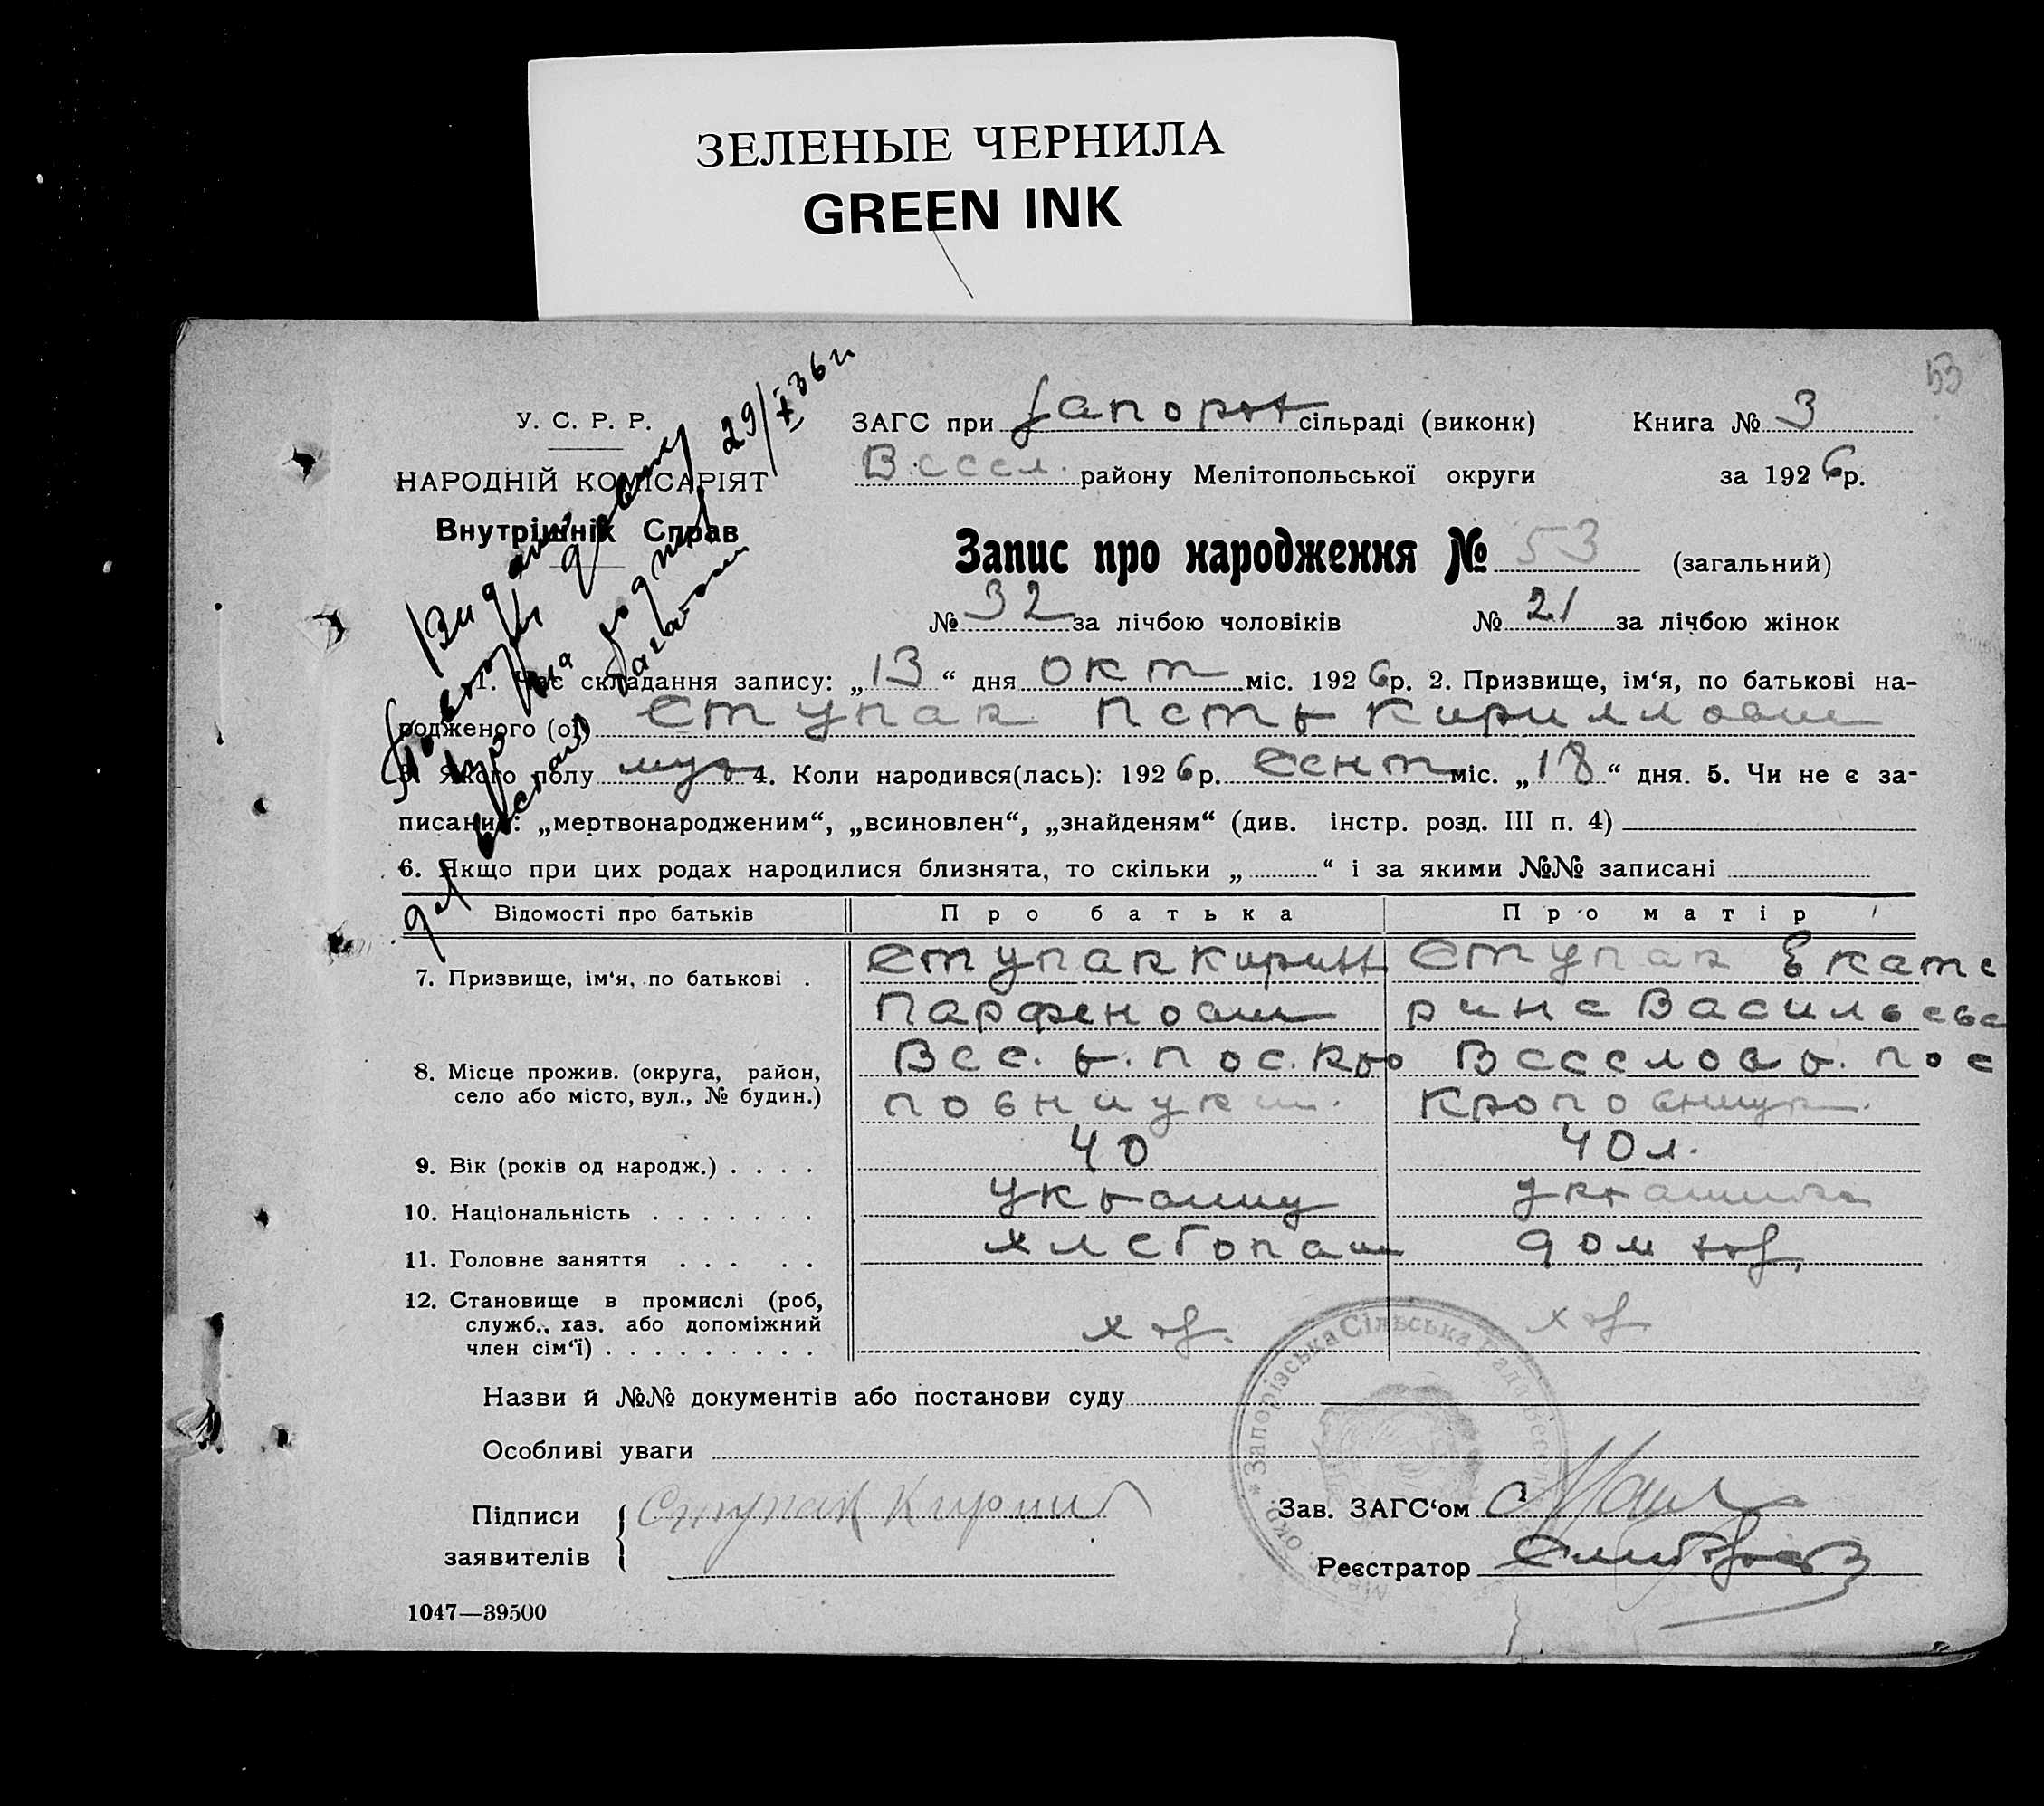 ЗЕЛЕНЫЕ ЧЕРНИЛА
GREEN INK
53
У. С. Р. Р.
НАРОДНІЙ КОМІСАРІЯТ
Внутрішніх Справ
29/X 36
ЗАГС при Запорож сільраді (виконк)
Книга № 3
Весел. району Мелітопольської округи
за 1926р.
Запис про народження № 53 (загальний)
№ 32 за лічбою чоловіків
№ 21 за лічбою жінок
1. Час складання запису: „13“ дня окт міс. 1926р. 2. Призвище, ім‘я, по батькові на-
родженого (ої) Ступак Петр Кириллович
3. Якого полу муж 4. Коли народився(лась): 1926р. сент міс. „18“ дня. 5. Чи не є за-
писаний: „мертвонародженим“, „всиновлен“, „знайденям“ (див. інстр. розд. III п. 4)
6. Якщо при цих родах народилися близнята, то скільки „ “ і за якими №№ записані
Відомості про батьків
Про батька
Про матір
7. Призвище, ім‘я, по батькові .
Ступак Кирилл
Парфенович
Ступак Екате
рина Васильевна
8. Місце прожив. (округа, район,
село або місто, вул., № будин.)
Вес. р. пос. Кро
повницк
Веселов р. пос
Кроповницк.
9. Вік (років од народж.) . . . .
40
40 л.
10. Національність . . . . . . .
украинц
украинка
11. Головне заняття . . . . .
хлебопаш
дом хоз.
12. Становище в промислі (роб,
служб., хаз. або допоміжний
член сім‘ї) . . . . . . . . .
хоз.
хоз
Назви й №№ документів або постанови суду
Особливі уваги
Підписи
заявителів
Ступак Кирил
Зав. ЗАГС‘ом
Реєстратор
Запорізська Сільська Рада Весел
Меліт. окр.
1047—39500